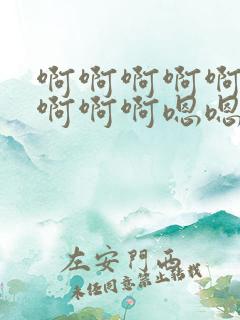 啊啊啊啊啊
啊啊啊嗯嗯
左安門西
未经同意禁止转载